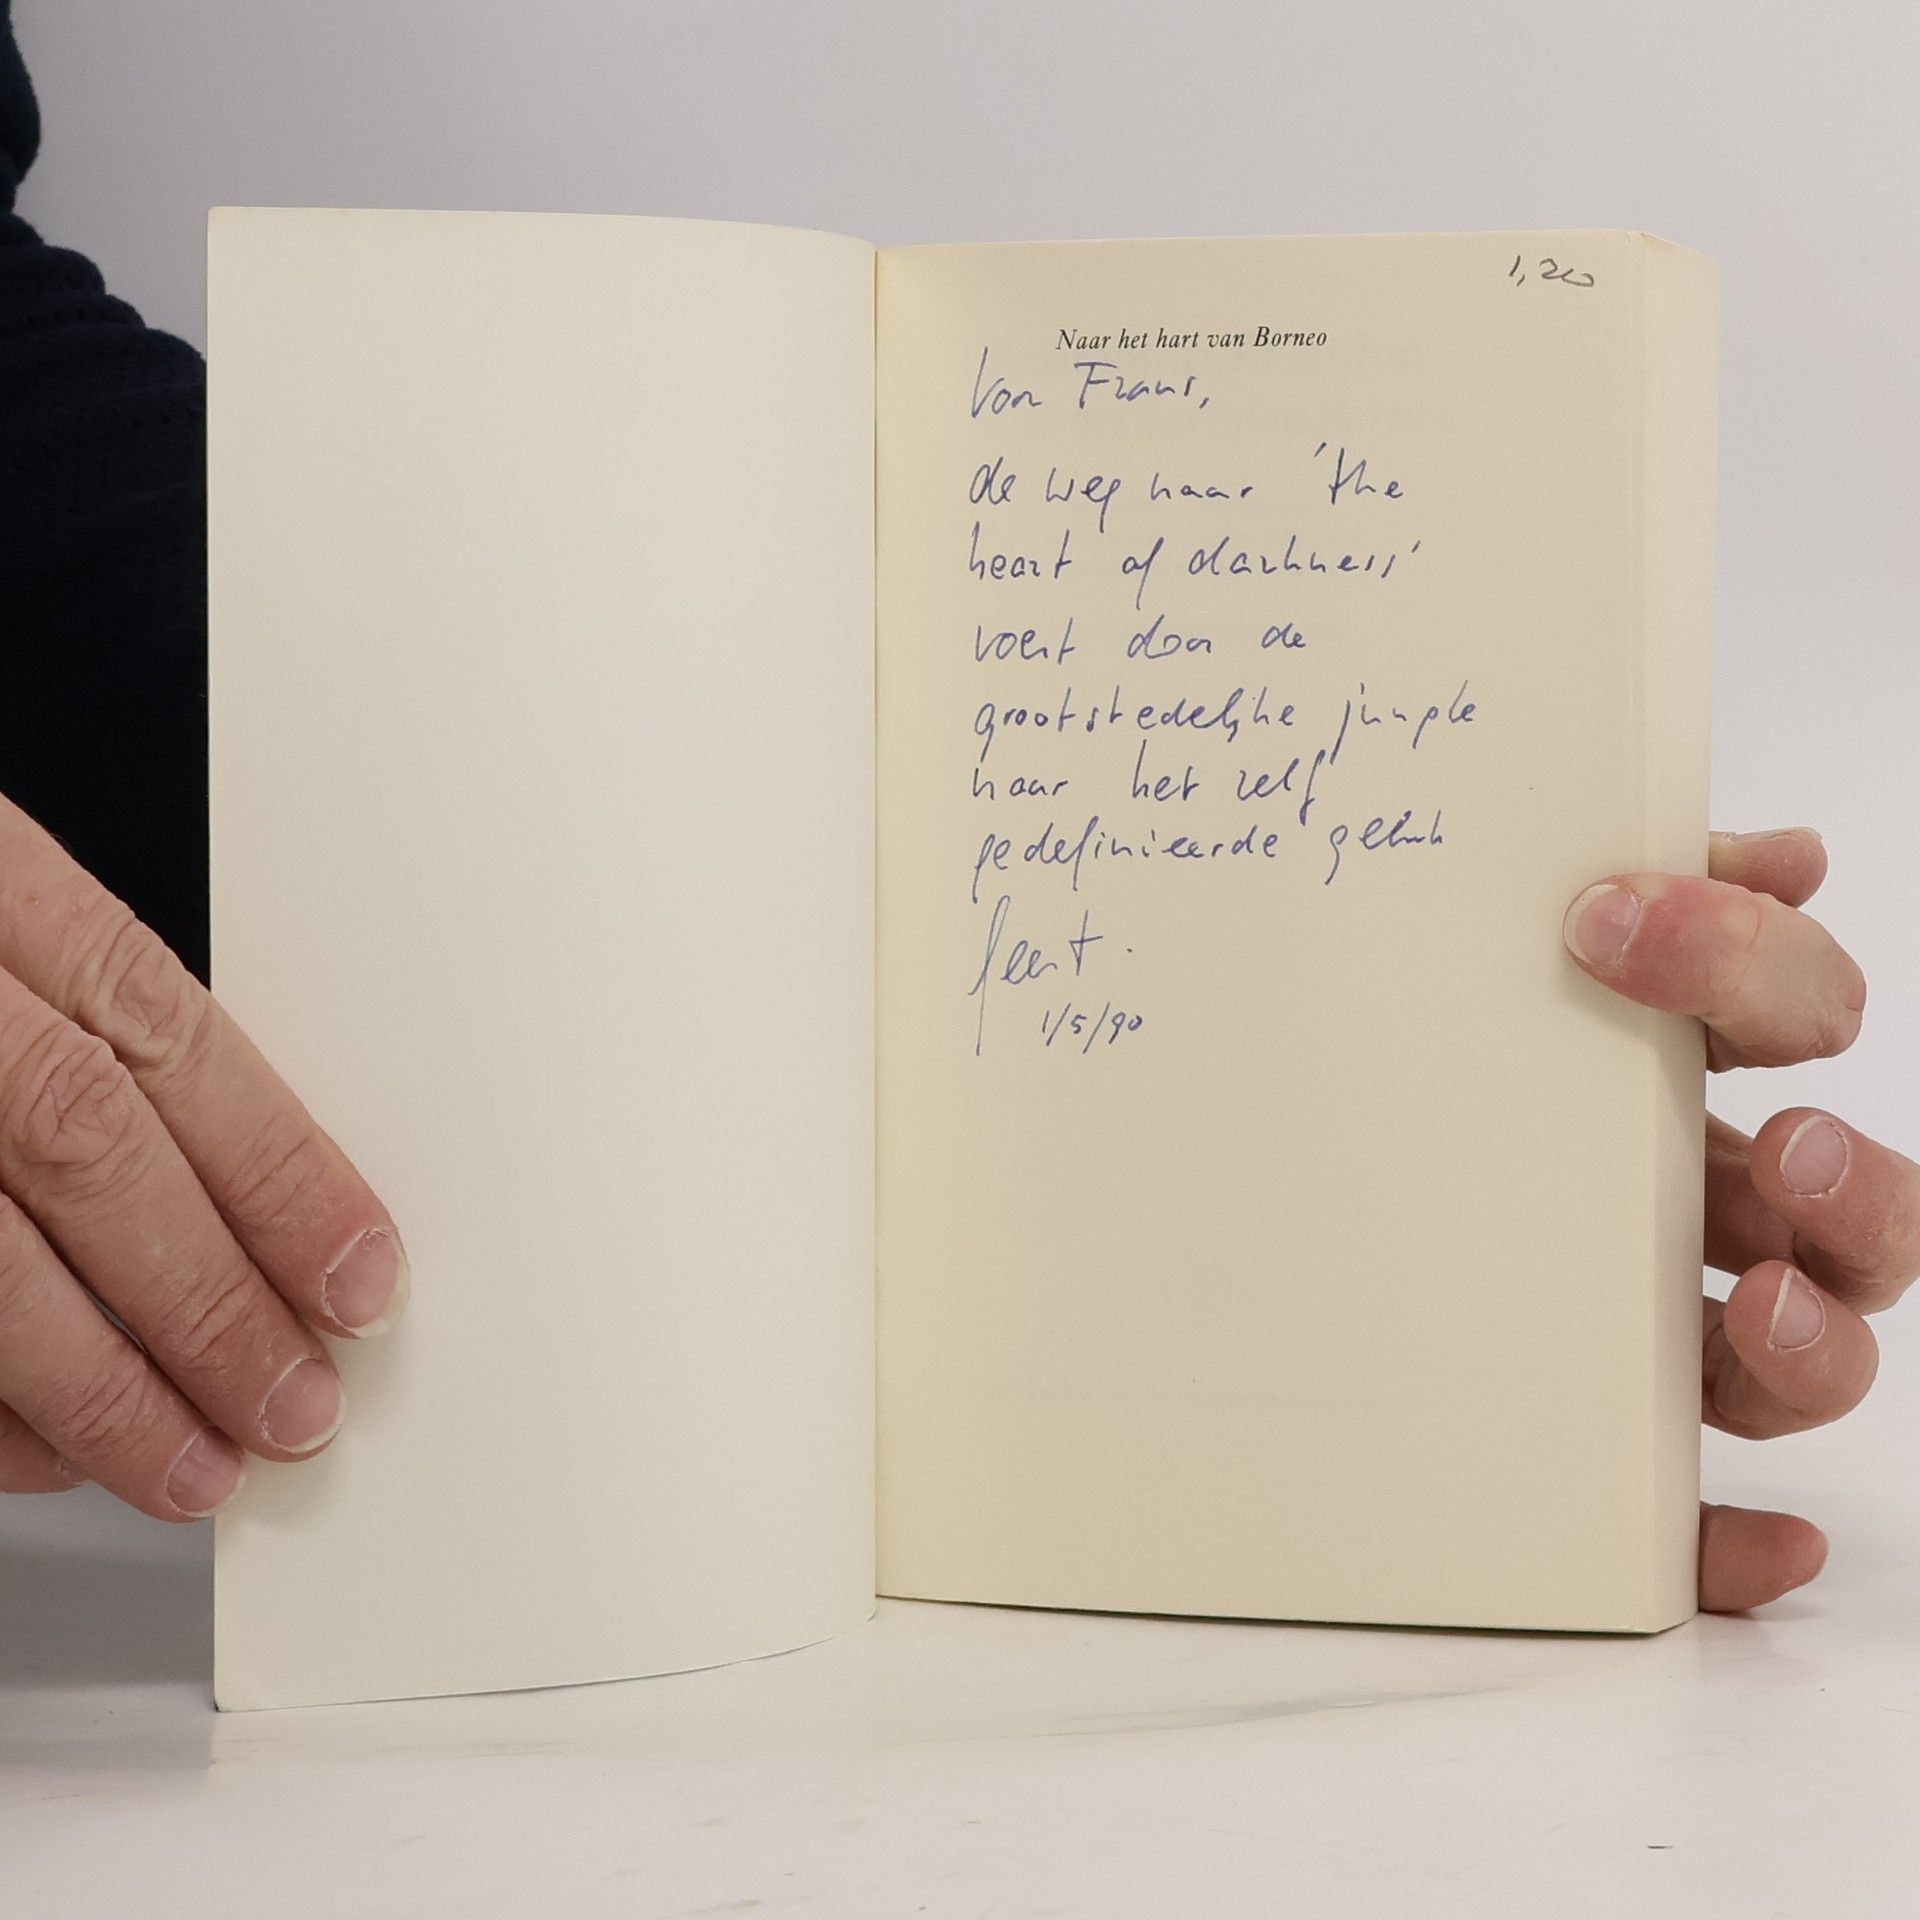 1,20
Naar het hart van Borneo
Voor Frans,
de weg naar 'the
heart of darkness'
voert door de
grootstedelijke jungle
naar het zelf
gedefinieerde geluk
Geert.
1/5/90